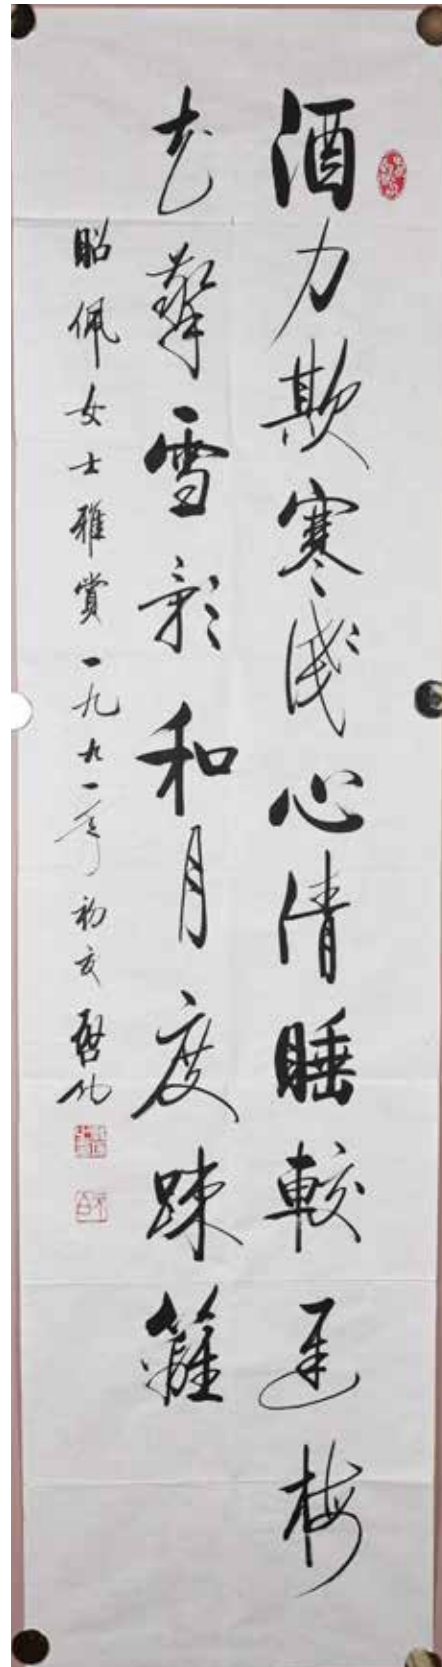 酒力欺寒淺心清睡較遲梅
花擎雪影和月度踈籬
昭佩女士雅賞一九九一年初夏啓功